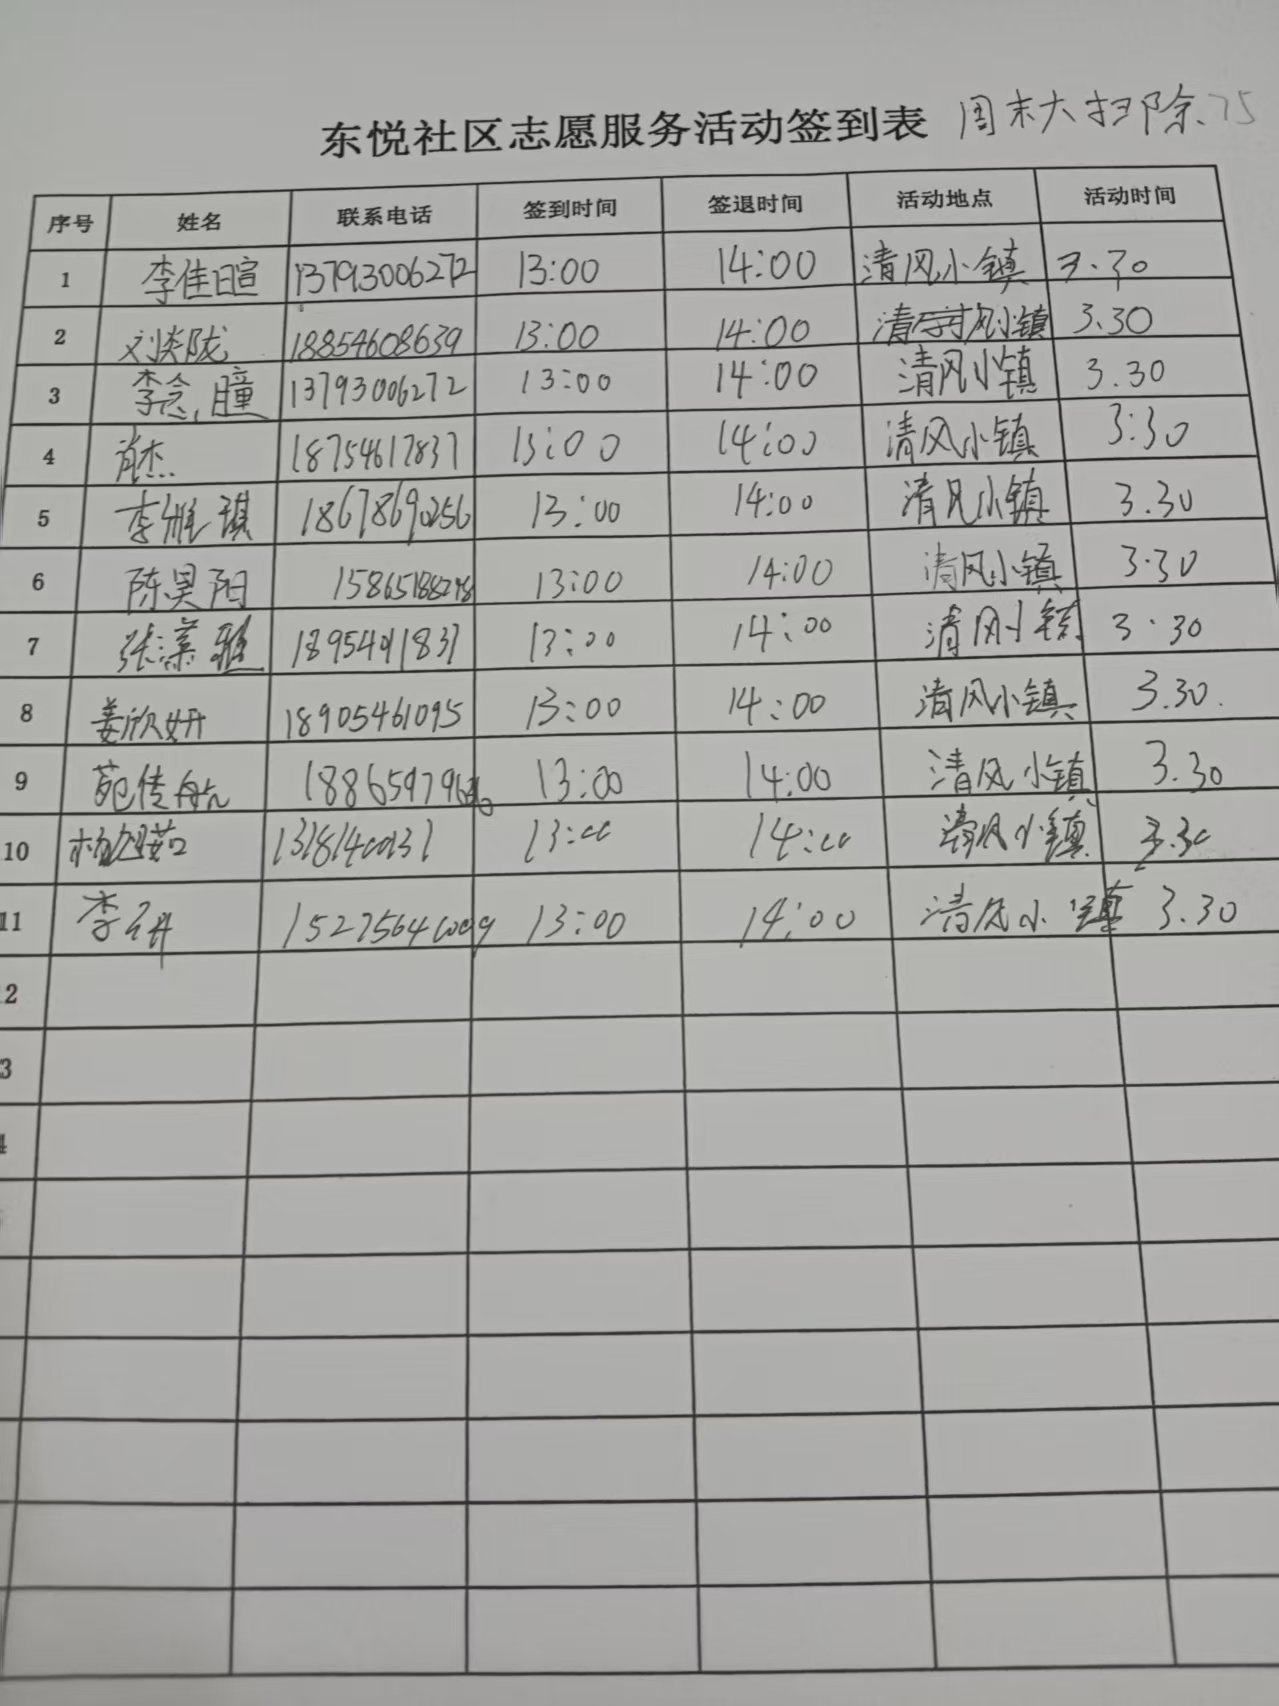 东悦社区志愿服务活动签到表 周末大扫除.75
序号 姓名 联系电话 签到时间 签退时间 活动地点 活动时间
1 李佳暄 13793006272 13:00 14:00 清风小镇 3.30
2 刘炎陇 18854608639 13:00 14:00 清风小镇 3.30
3 李念瞳 13793006272 13:00 14:00 清风小镇 3.30
4 肖杰 18754617837 13:00 14:00 清风小镇 3:30
5 李雅琪 18678690256 13:00 14:00 清风小镇 3.30
6 陈昊阳 13:00 14:00 清风小镇 3.30
7 张潆雅 13:00 14:00 清风小镇 3.30
8 姜欣妍 18905461095 13:00 14:00 清风小镇 3.30.
9 苑传航 13:00 14:00 清风小镇 3.30
10 杨旭茹 13181400131 13:00 14:00 清风小镇 3.30
11 李 13:00 14:00 清风小镇 3.30
2
3
4